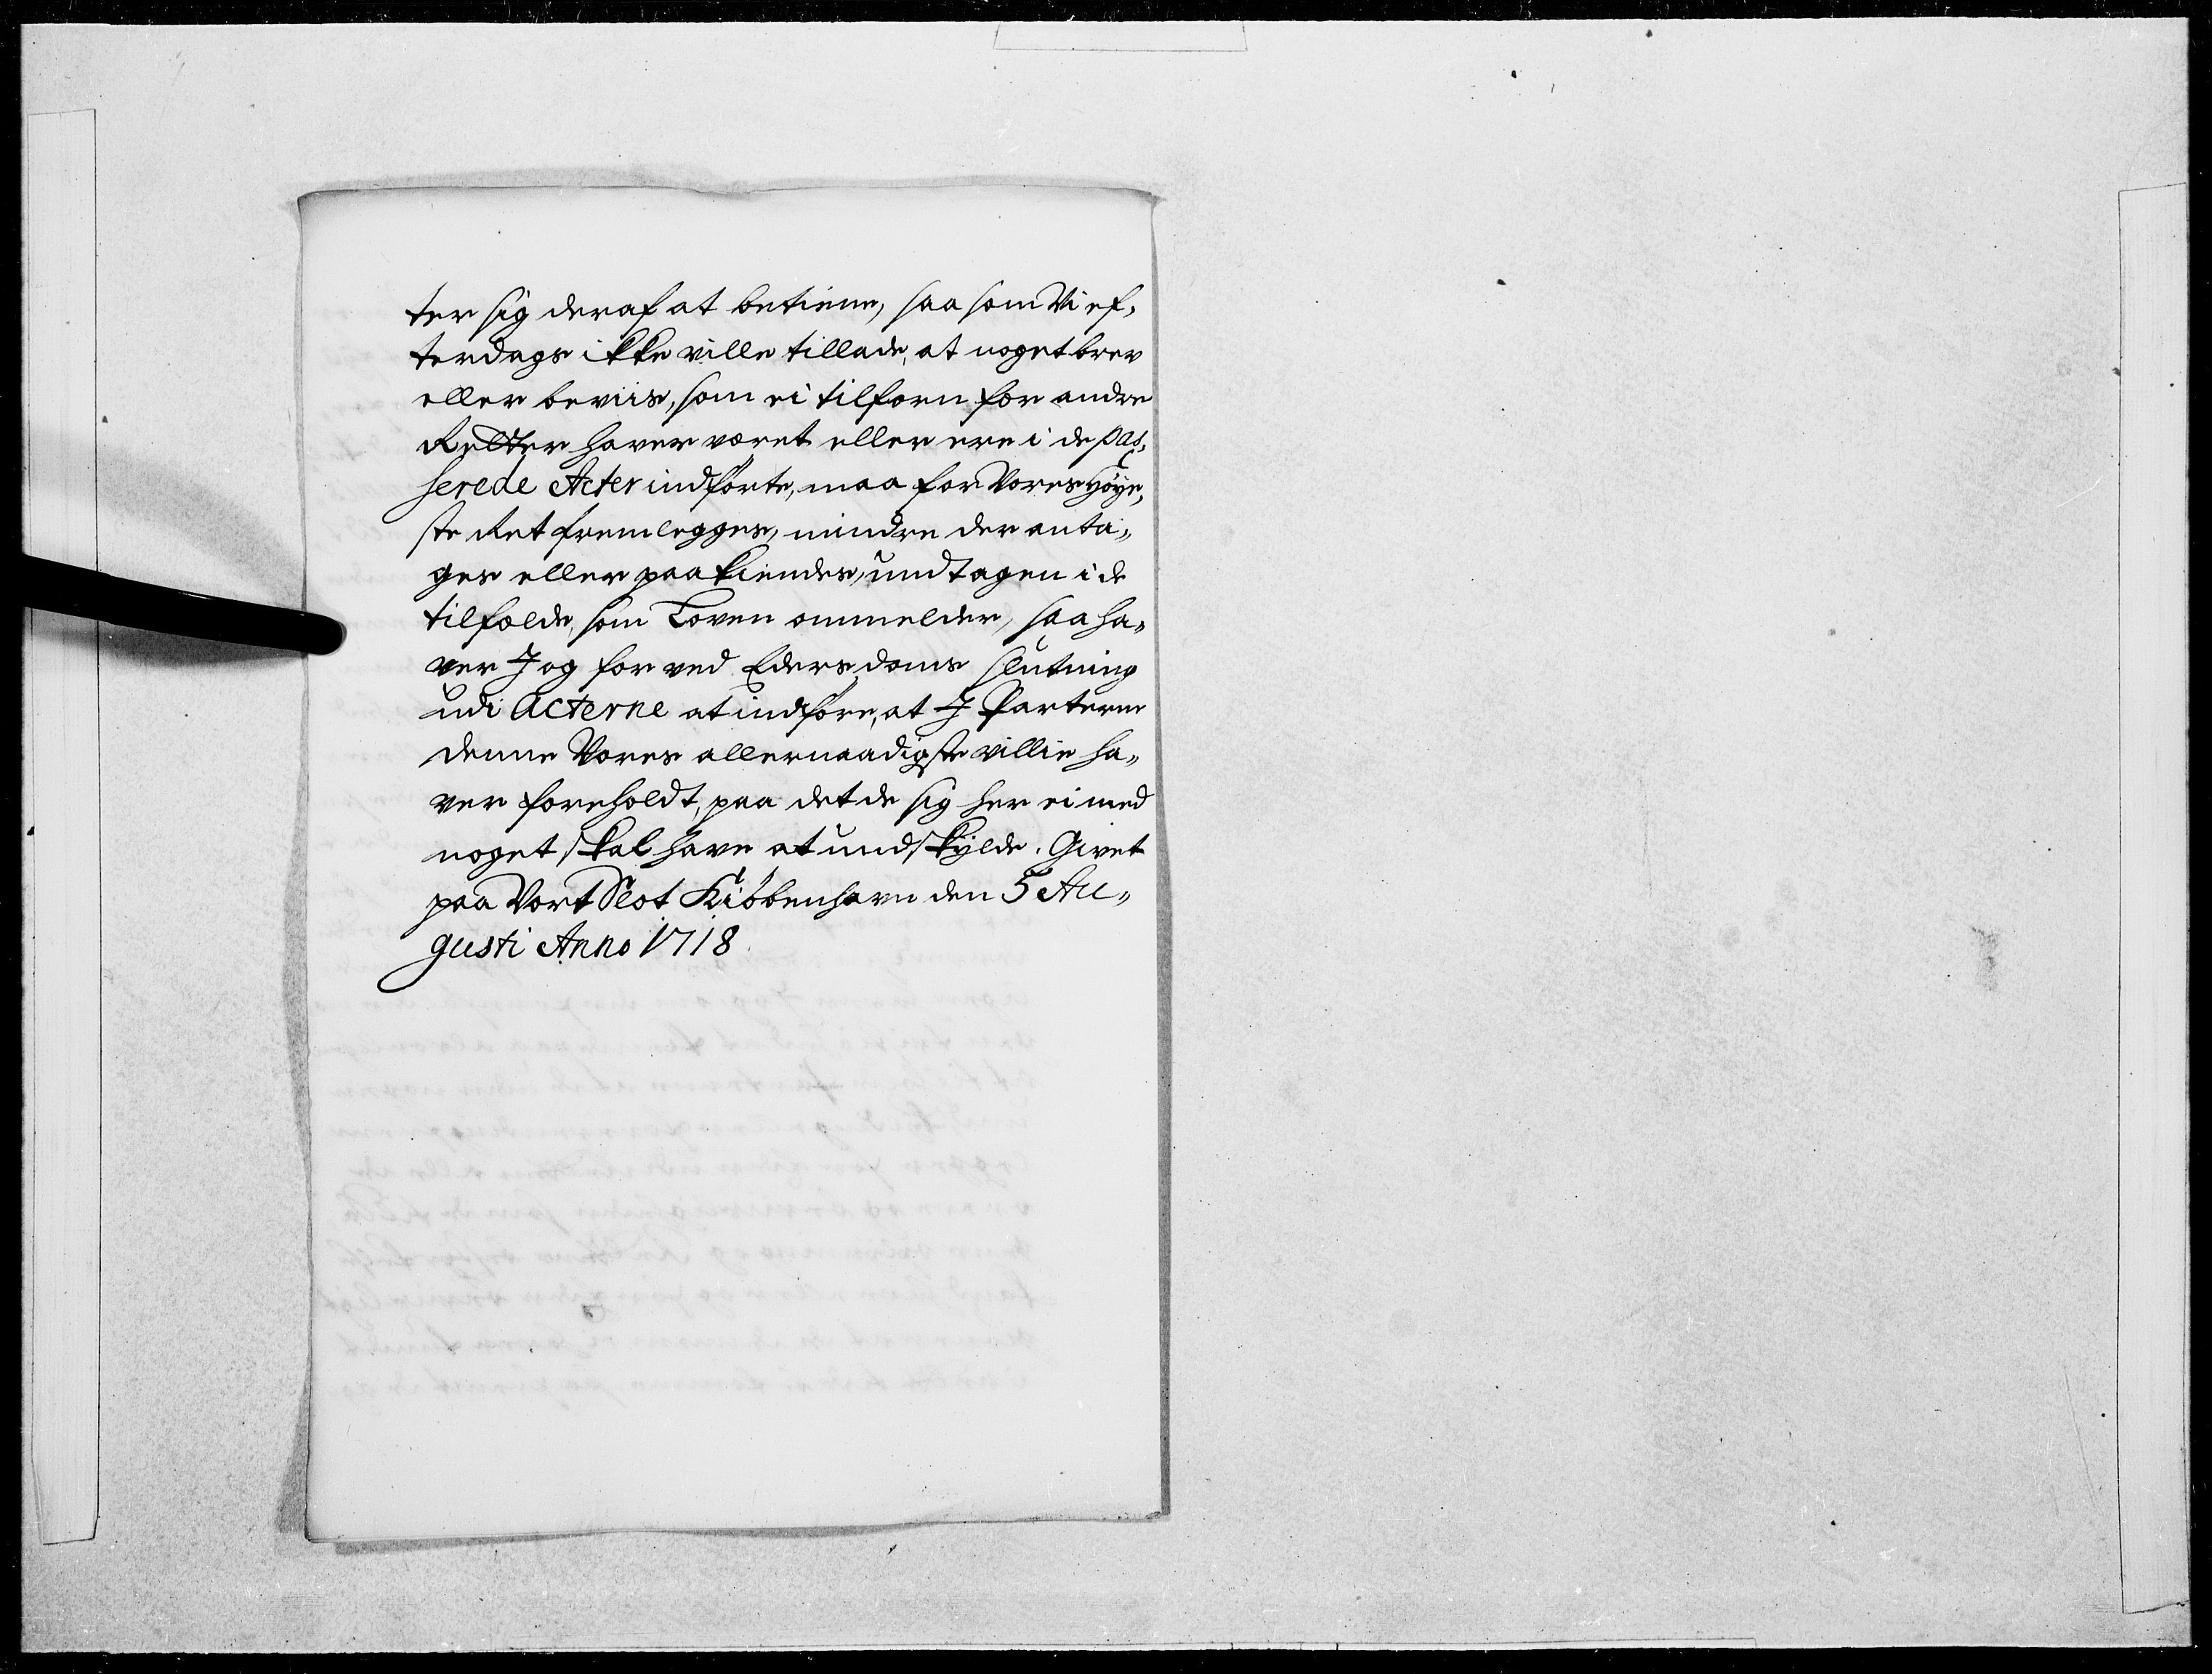 ter sig deraf at betiene, saa som Vi ef„
terdags ikke ville tillade, at noget brev
eller beviis, som ei tilforn for andre
Retter haver været eller ere i de pas„
serede Acter indførte, maa for Vores Høye„
ste Ret fremlegges, mindre der anta„
ges eller paakiendes, undtagen i de
tilfælde, som Loven ommelder, saa ha„
ver I og for ved Eders doms slutning
udi Acterne at indføre, at I Parterne
denne Vores allernaadigste villie ha„
ver foreholdt, paa det de sig her ei med
noget skal have at undskylde. Givet
paa Vort Slot Kiöbenhavn den 5 Au„
gusti Anno 1718